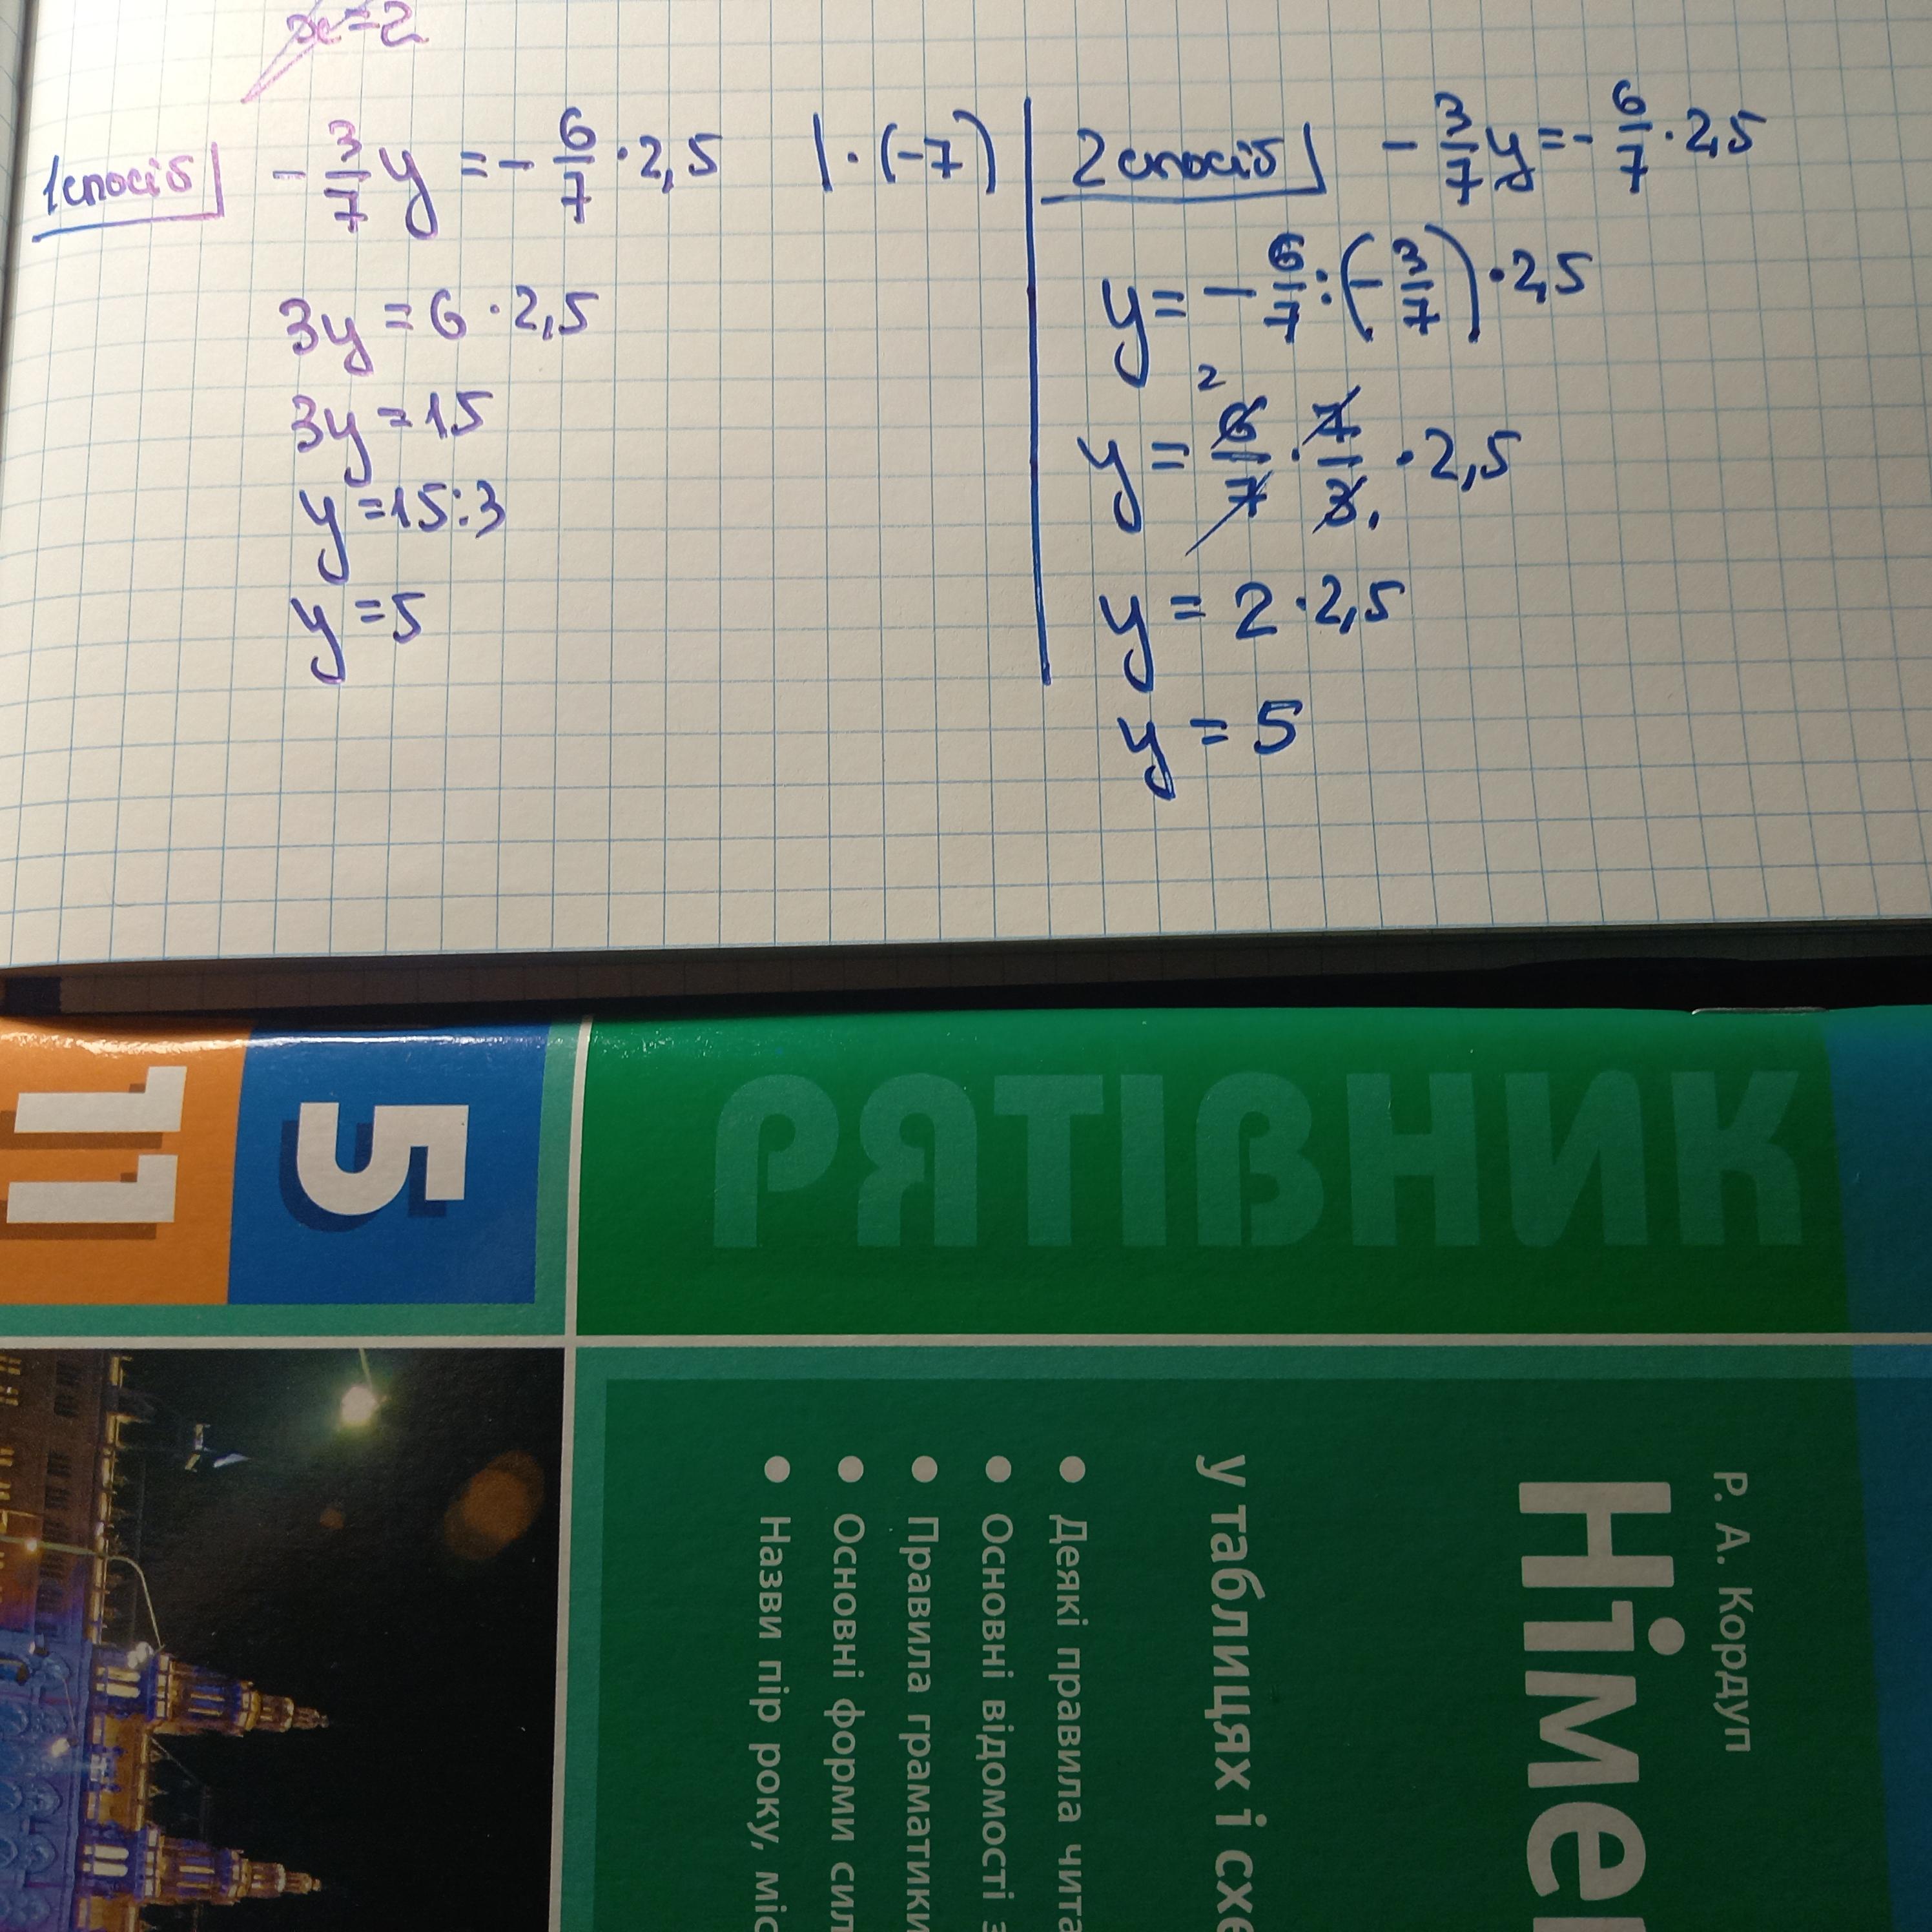 x=2
1 спосіб
-3/7 y = -6/7 · 2,5 | · (-7)
3y = 6 · 2,5
3y = 15
y = 15 : 3
y = 5
2 спосіб
-3/7 y = -6/7 · 2,5
y = -6/7 : (-3/7) · 2,5
2
y = 6/7 · 7/3 · 2,5
1
y = 2 · 2,5
y = 5
5
11
РЯТІВНИК
Р. А. Кордуп
у таблицях і
Деякі правила
Основні відомості
Правила граматики
Основні форми
Назви пір року,